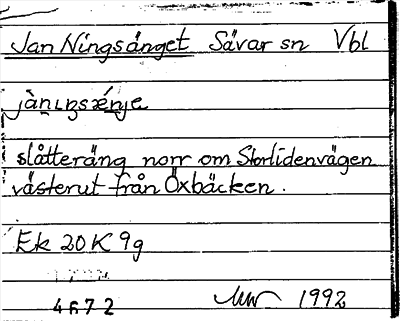 Jan Ningsänget Sävar sn Vbl
jànıŋsæ̀nje
slåtteräng norr om Storlidenvägen
västerut från Öxbäcken.
Ek 20 K 9g
4672
1992